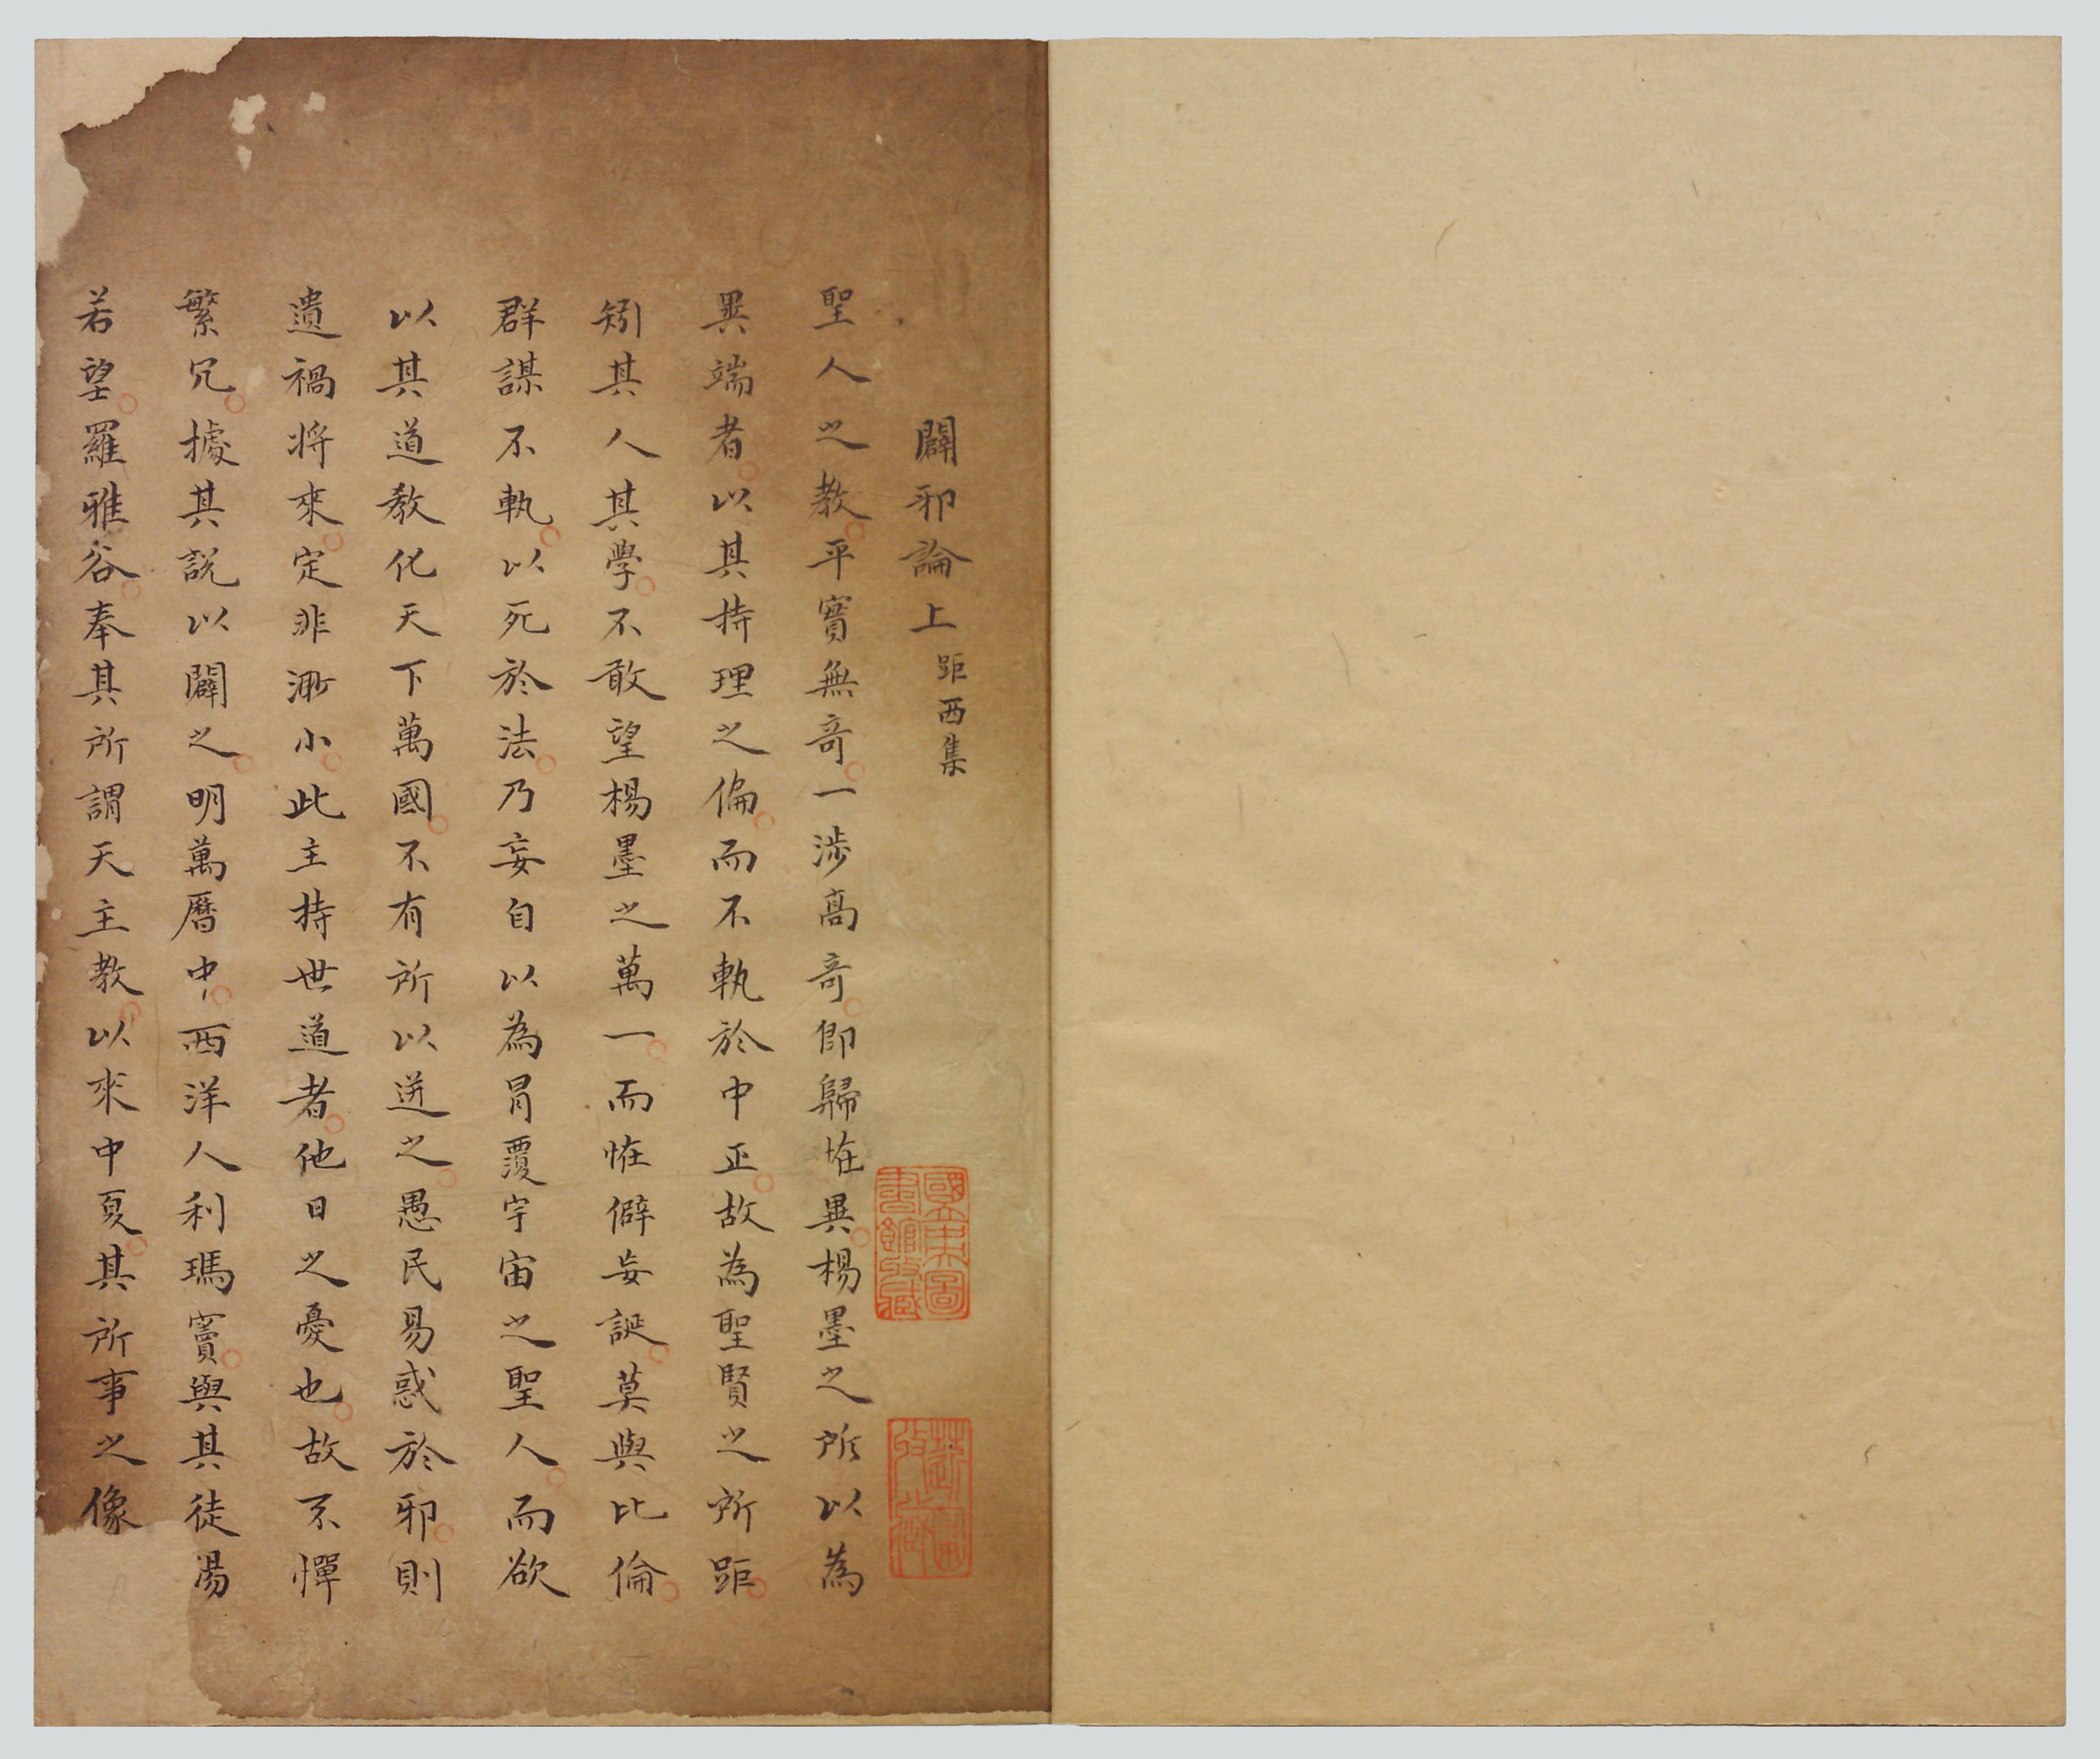 闢邪論上 距西集
聖人之教平實無奇一涉高奇即歸恠異楊墨之所以為
異端者以其持理之偏而不執於中正故為聖賢之所距
矧其人其學不敢望楊墨之萬一而恠僻妄誕莫與比倫
群謀不軌以死於法乃妄自以為冐覆宇宙之聖人而欲
以其道教化天下萬國不有所以迸之愚民易惑於邪則
遺禍將來定非渺小此主持世道者他日之憂也故不憚
繁冗據其說以闢之明萬曆中西洋人利瑪竇與其徒湯
若望羅雅谷奉其所謂天主教以來中夏其所事之像
國立中央圖書館收藏